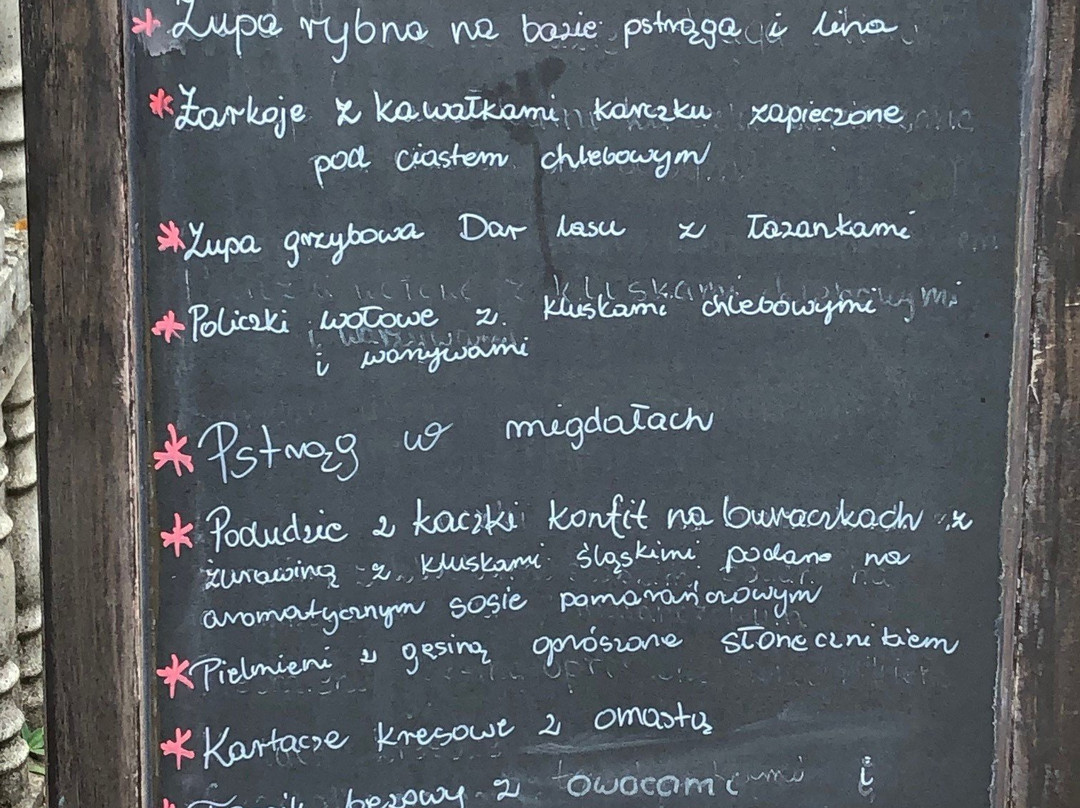 * Zupa rybna na bazie pstrąga i lina
* Żarkoje z kawałkami karczku zapieczone
pod ciastem chlebowym
* Zupa grzybowa Dar lasu z łazankami
* Policzki wołowe z kluskami chlebowymi
i warzywami
* Pstrąg w migdałach
* Podudzie z kaczki konfit na buraczkach z
żurawiną z kluskami śląskimi podane na
aromatycznym sosie pomarańczowym
* Pielmieni z gęsiną oprószone słonecznikiem
* Kartacze kresowe z omastą
bezowy z owocami i